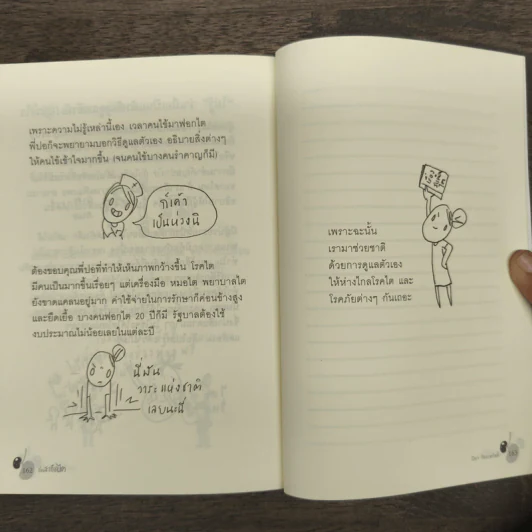 เพราะความไม่รู้เหล่านี้เอง เวลาคนไข้มาฟอกไต
พี่ปอก็จะพยายามบอกวิธีดูแลตัวเอง อธิบายสิ่งต่างๆ
ให้คนไข้เข้าใจมากขึ้น (จนคนไข้บางคนรำคาญก็มี)
ก็เค้า
เป็นห่วงนิ
ต้องขอบคุณพี่ปอที่ทำให้เห็นภาพกว้างขึ้น โรคไต
มีคนเป็นมากขึ้นเรื่อยๆ แต่เครื่องมือ หมอไต พยาบาลไต
ยังขาดแคลนอยู่มาก ค่าใช้จ่ายในการรักษาก็ค่อนข้างสูง
และยืดเยื้อ บางคนฟอกไต 20 ปีก็มี รัฐบาลต้องใช้
งบประมาณไม่น้อยเลยในแต่ละปี
นี่มัน
วาระแห่งชาติ
เลยนะนี่
162
เพราะฉะนั้น
เรามาช่วยชาติ
ด้วยการดูแลตัวเอง
ให้ห่างไกลโรคไต และ
โรคภัยต่างๆ กันเถอะ